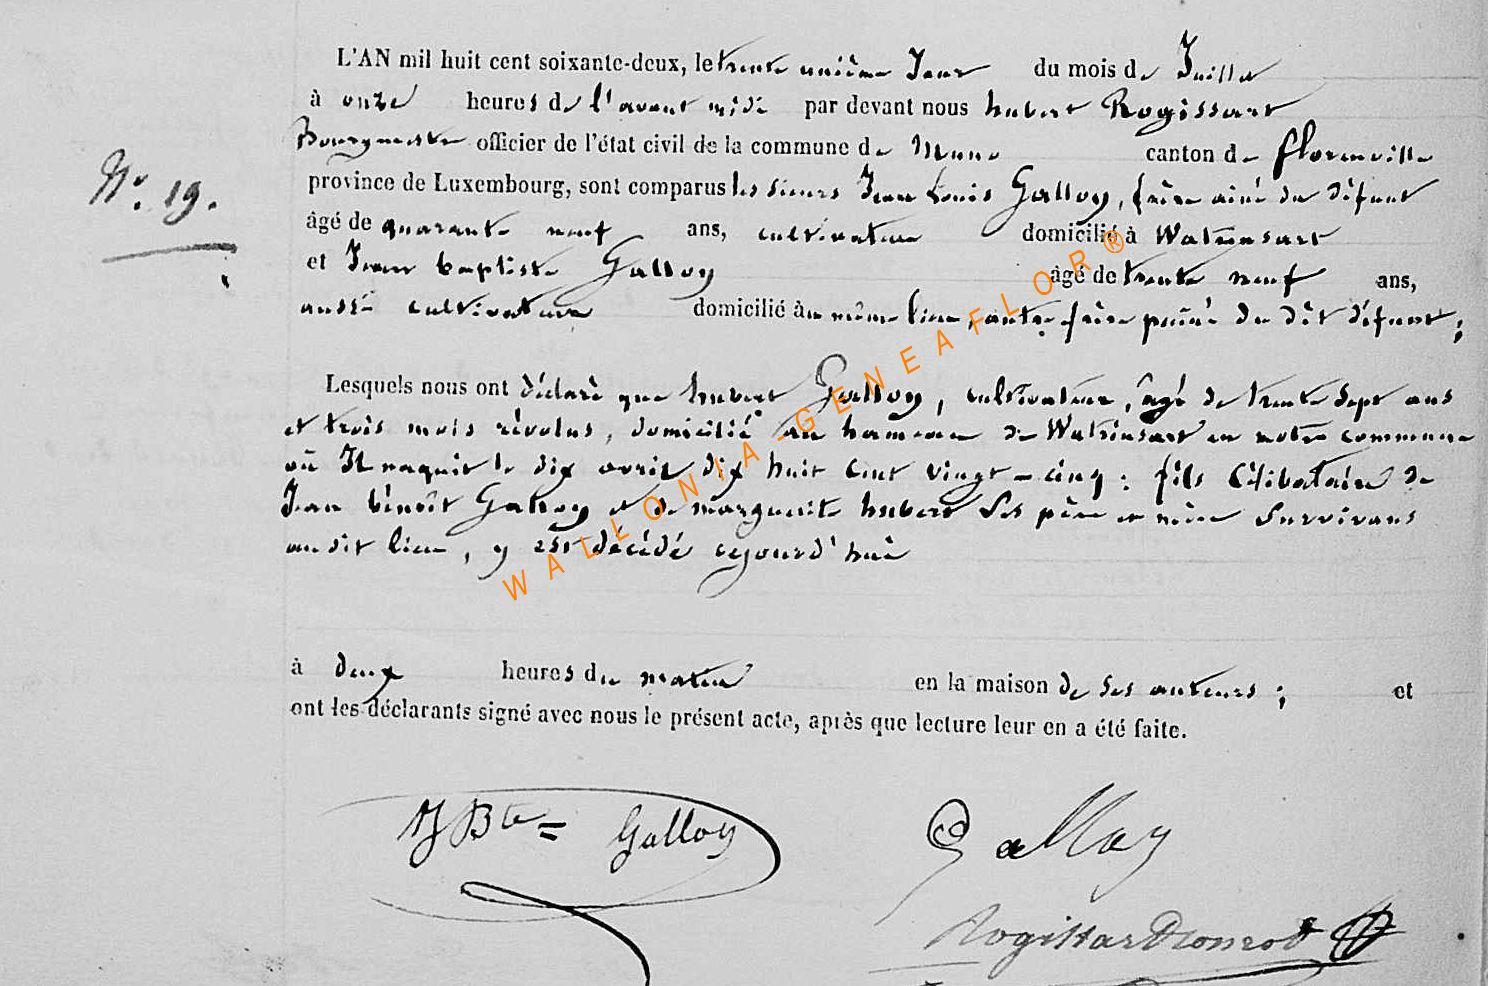 L'AN mil huit cent soixante-deux, le trente unième Jour du mois de Juillet
à onze heures de l'avant midi par devant nous hubert Rogissart
Bourgmestre officier de l'état civil de la commune de Muno canton de florenville
N°. 19.
province de Luxembourg, sont comparus les sieurs Jean Louis Galloy, frère ainé du défunt
âgé de quarante neuf ans, cultivateur domicilié à Watrinsart
et Jean baptiste Galloy âgé de trente neuf ans,
aussi cultivateur domicilié au même lieu, autre frère puiné du dit défunt;
Lesquels nous ont déclaré que hubert Galloy, cultivateur, âgé de trente sept ans
et trois mois révolus, domicilié au hameau de Watrinsart en notre commune
où Il naquit le dix avril dix huit cent vingt-cinq; fils Célibataire de
Jean bênoit Galloy et de marguerite hubert Ses père et mère Survivans
au dit lieu, y est décédé cejourd'hui
à deux heures du matin en la maison de ses auteurs; et
ont les déclarants signé avec nous le présent acte, après que lecture leur en a été faite.
J Bte = Galloy Galloy
Rogissart
WALLONIA-GENEAFLOR®